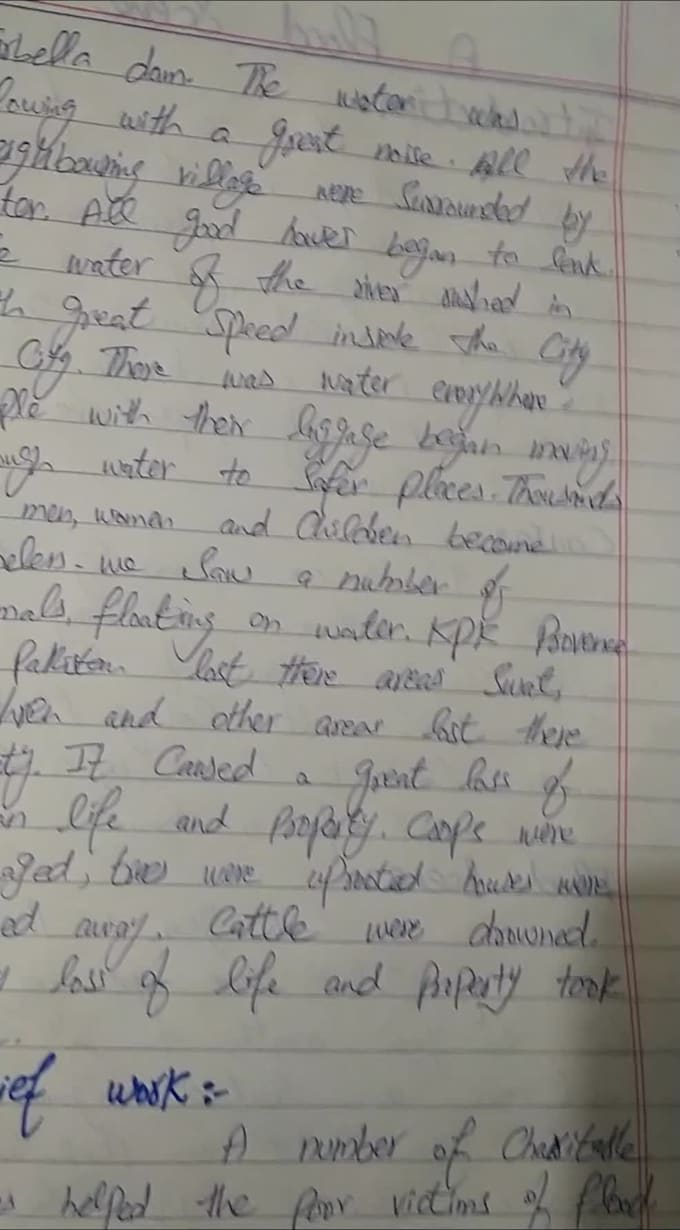 rbella dam. The water was
lowing with a great noise. All the
eighbouring village were Surrounded by
ter. All good houses began to Senk.
e water of the river rushed in
th great Speed inside the City
City. There was water everywhere.
ple with their luggage began moving
ough water to Safer places. Thousands
men, women and Children become
eless. we Saw a number of
mals, floating on water. KPK Provence
Pakisten. last there areas Swat,
and other areas last there
ty. It Caused a great loss of
an life and Property. Crops were
aged, trees were uprooted houses were
ed away. Cattle were drowned.
y loss of life and Property took
ief work:-
A number of Charitable
s helped the poor victims of flood